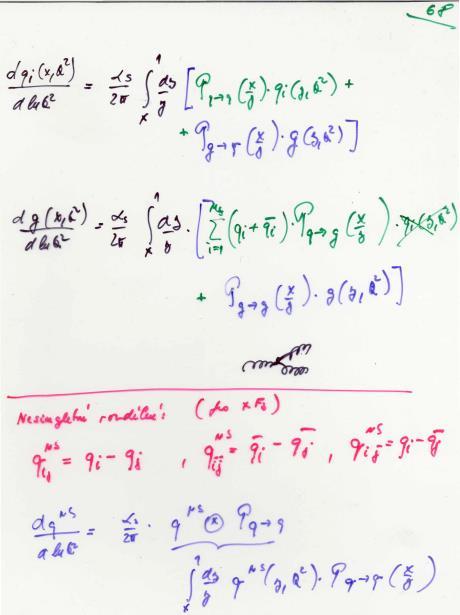 68
dqi(x,Q²)/dlnQ² = αs/2π ∫ₓ¹ dy/y [P_{q→q}(x/y)·qi(y,Q²) +
+ P_{g→q}(x/y)·g(y,Q²)]
dg(x,Q²)/dlnQ² = αs/2π ∫ₓ¹ dy/y·[∑_{i=1}^{nf}(qi+q̄i)·P_{q→g}(x/y)·qi(y,Q²)
+ P_{g→g}(x/y)·g(y,Q²)]
Nesingletní rozdělení: (pro xF₃)
q_{ij}^{NS} = qi − qj , q_{īj̄}^{NS} = q̄i − q̄j , q_{ij̄}^{NS} = qi − q̄j
dq^{NS}/dlnQ² = αs/2π · q^{NS} ⊗ P_{q→q}
∫ₓ¹ dy/y q^{NS}(y,Q²)·P_{q→q}(x/y)